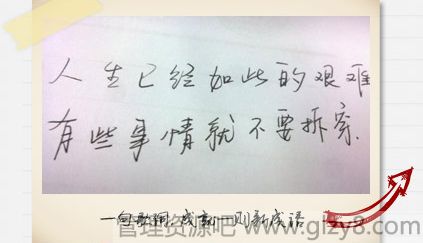 人生已经如此的艰难
有些事情就不要拆穿.
一句歌词,成就一则新成语
管理资源吧 www.glzy8.com